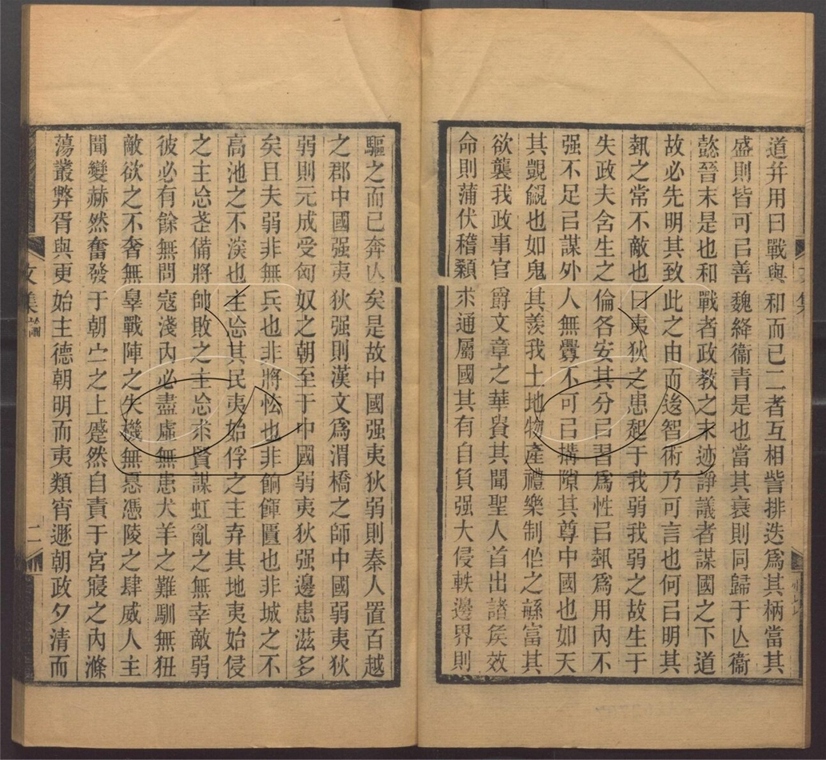 道幷用曰戰與和而已二者互相訾排迭爲其柄當其
盛則皆可㠯善魏絳衞青是也當其衰則同歸于亾衞
懿晉末是也和戰者政敎之末迹諍議者謀國之下道
故必先明其致此之由而後智術乃可言也何㠯明其
埶之常不敵也曰夷狄之患起于我弱我弱之故生于
失政夫含生之倫各安其分㠯習爲性㠯埶爲用內不
强不足㠯謀外人無釁不可㠯搆隙其尊中國也如天
其覬覦也如鬼其羨我土地物產禮樂制作之緐富其
欲襲我政事官爵文章之華貴其聞聖人首出諸矦效
命則蒲伏稽顙求通屬國其有自負强大侵軼邊界則
驅之而已奔亾矣是故中國强夷狄弱則秦人置百越
之郡中國强夷狄强則漢文爲渭橋之師中國弱夷狄
弱則元成受匈奴之朝至于中國弱夷狄强邊患滋多
矣且夫弱非無兵也非將恇也非餉餫匱也非城之不
高池之不深也主怠其民夷始俘之主弃其地夷始侵
之主怠荖備將帥敗之主怠求賢謀虹亂之無幸敵弱
彼必有餘無問寇淺內必盡虛無患犬羊之難馴無狃
敵欲之不奢無辠戰陣之失機無惎憑陵之肆威人主
聞變赫然奮發于朝亡之上蹙然自責于宮寢之內滌
蕩叢弊胥與更始主德朝明而夷類宵遯朝政夕清而
文集
二